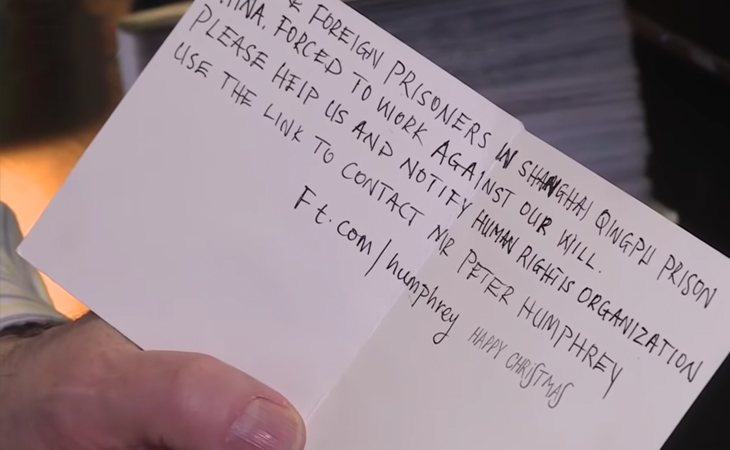 FOREIGN PRISONERS IN SHANGHAI QINGPU PRISON
FORCED TO WORK AGAINST OUR WILL.
PLEASE HELP US AND NOTIFY HUMAN RIGHTS ORGANIZATION
USE THE LINK TO CONTACT MR PETER HUMPHREY
Ft.com/humphrey
HAPPY CHRISTMAS